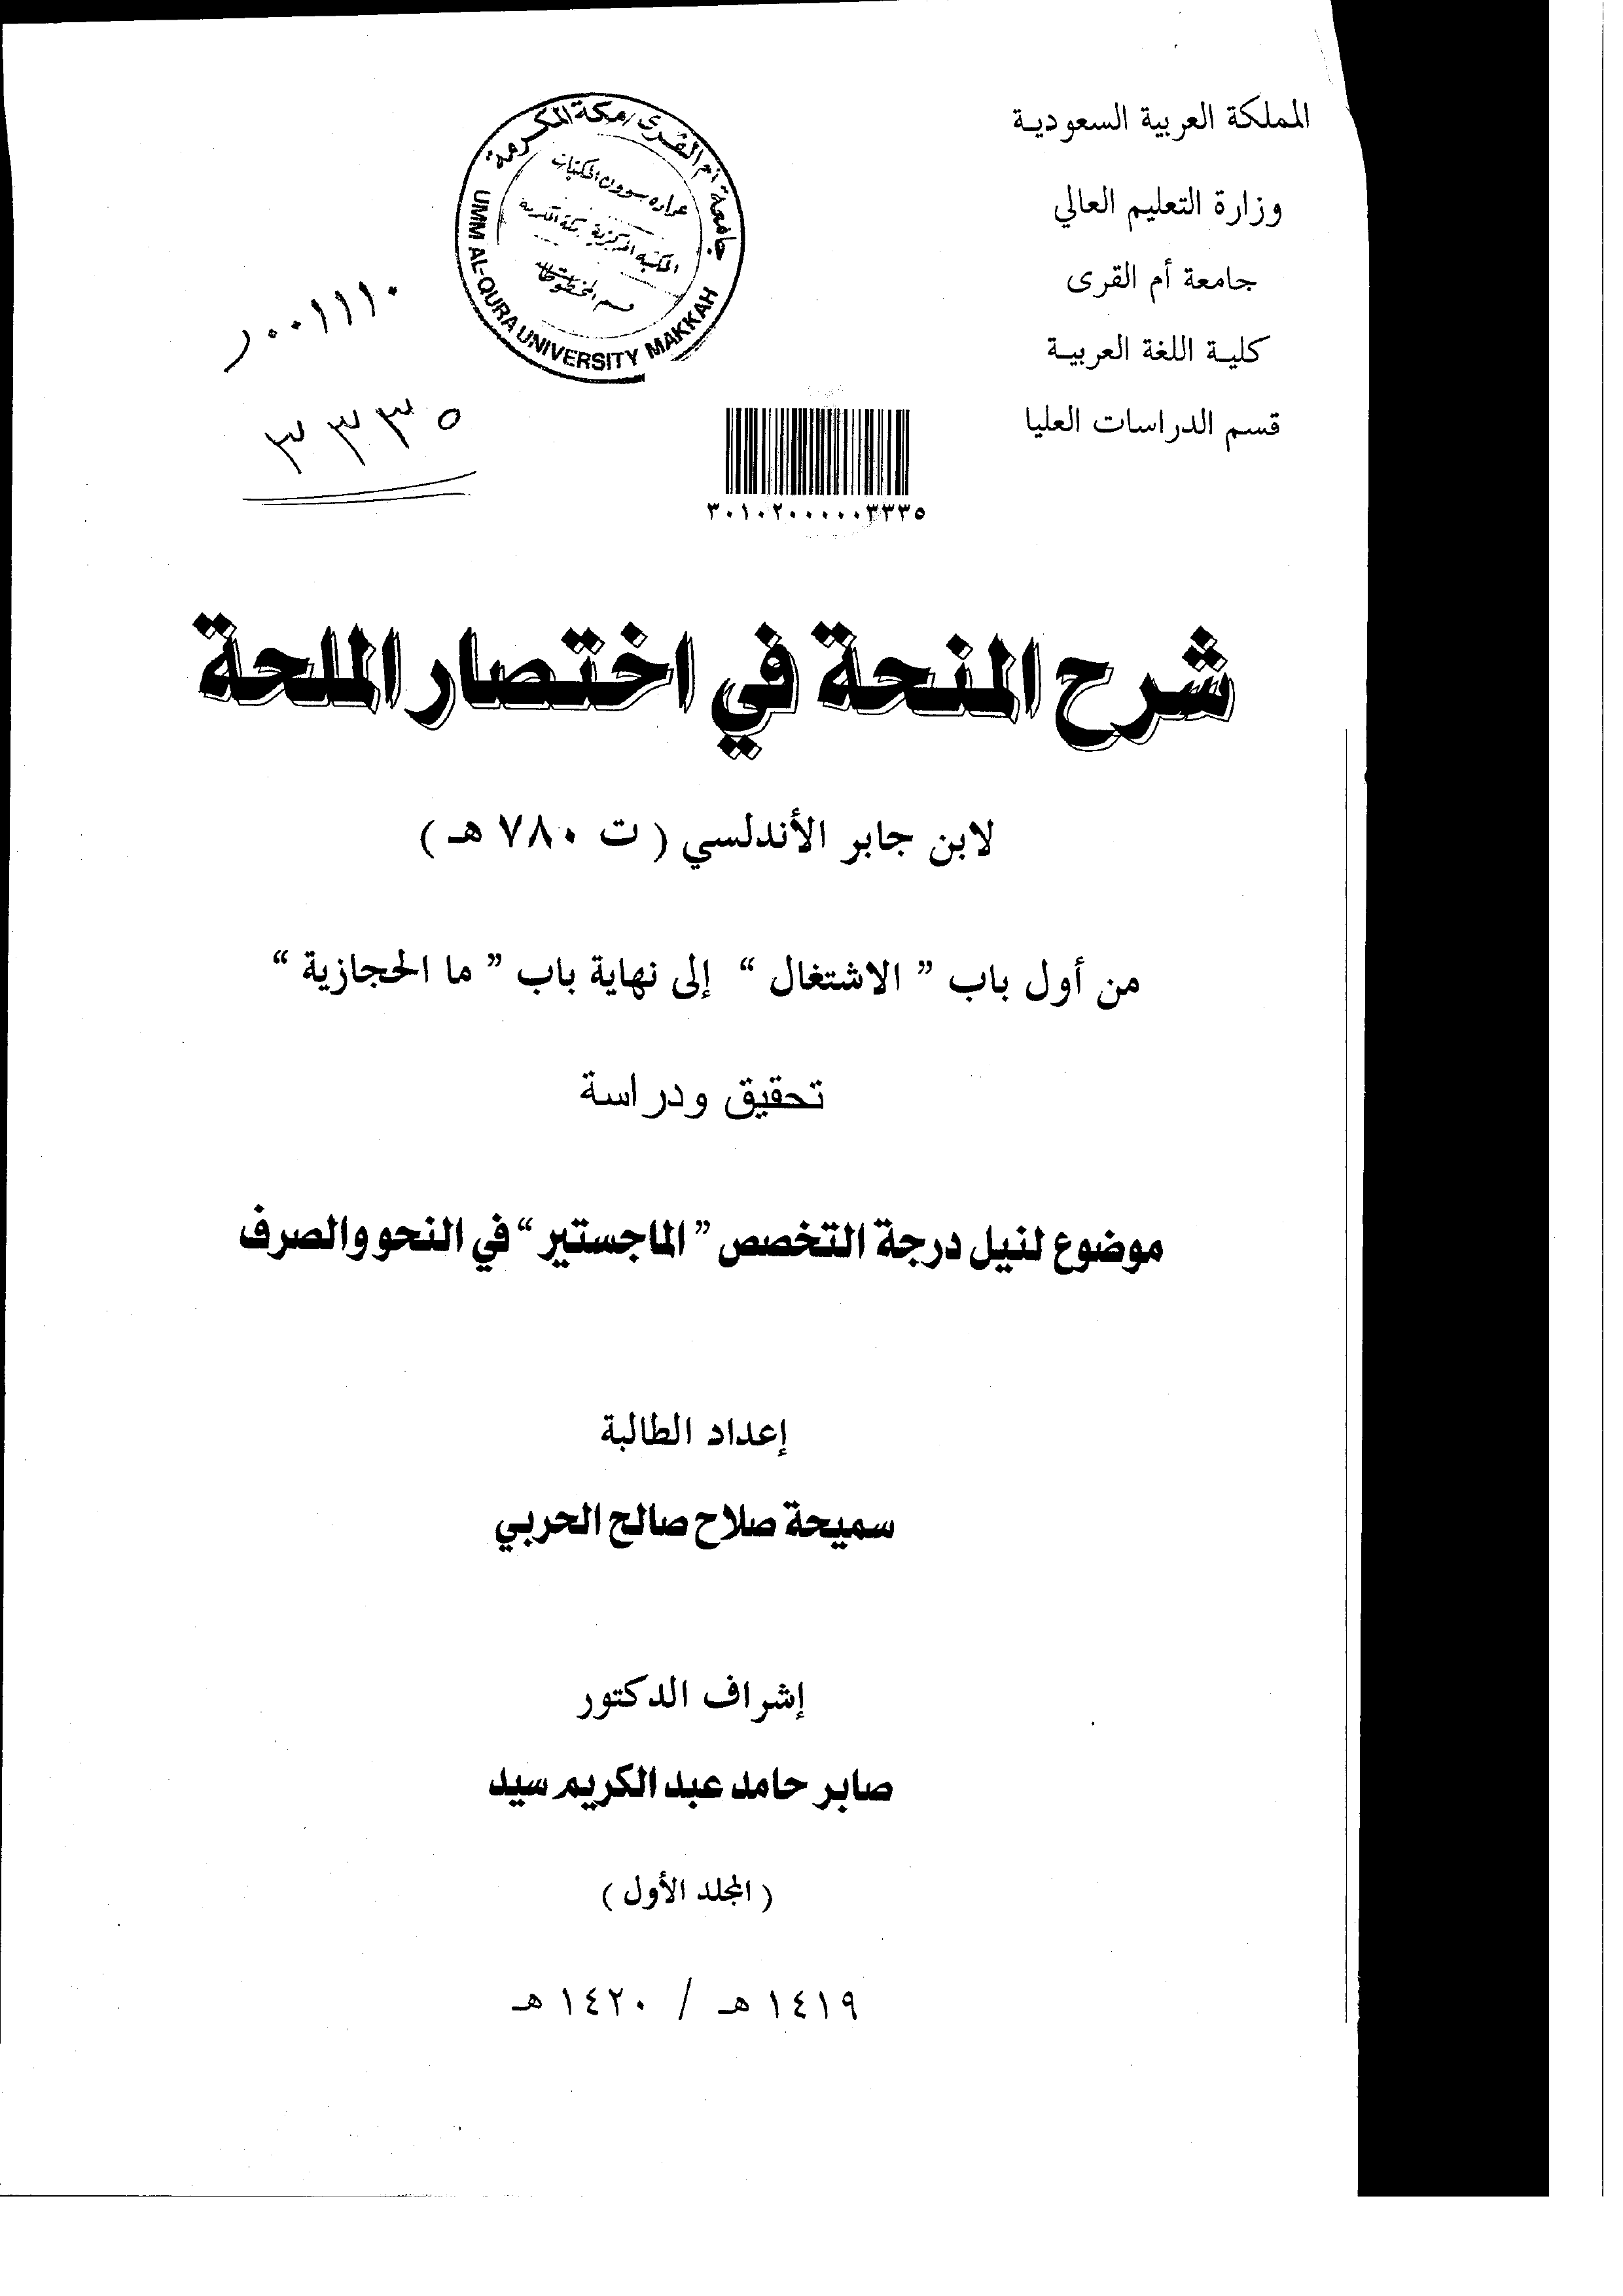 المملكة العربية السعودية
وزارة التعليم العالي
جامعة أم القرى
كلية اللغة العربية
قسم الدراسات العليا
جامعة أم القرى / مكة المكرمة
المكتبة المركزية بمكة المكرمة
قسم المخطوطات
UMM AL-QURA UNIVERSITY MAKKAH
ر٠٠١١١٠
٣٣٣٥
٣٠١٠٢٠٠٠٠٠٣٣٣٥
شرح المنحة في اختصار الملحة
لابن جابر الأندلسي ( ت ٧٨٠ هـ )
من أول باب ” الاشتغال “ إلى نهاية باب ” ما الحجازية “
تحقيق ودراسة
موضوع لنيل درجة التخصص ” الماجستير “ في النحو والصرف
إعداد الطالبة
سميحة صلاح صالح الحربي
إشراف الدكتور
صابر حامد عبد الكريم سيد
( المجلد الأول )
١٤١٩ هـ / ١٤٢٠ هـ